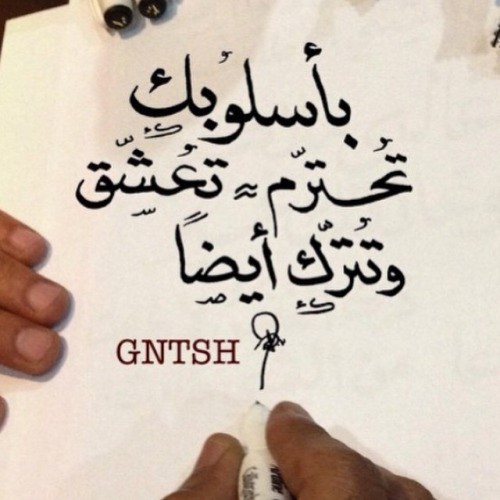 بأسلوبك
تُحترّم ~ تُعشّق
وتُترّك أيضاً
GNTSH